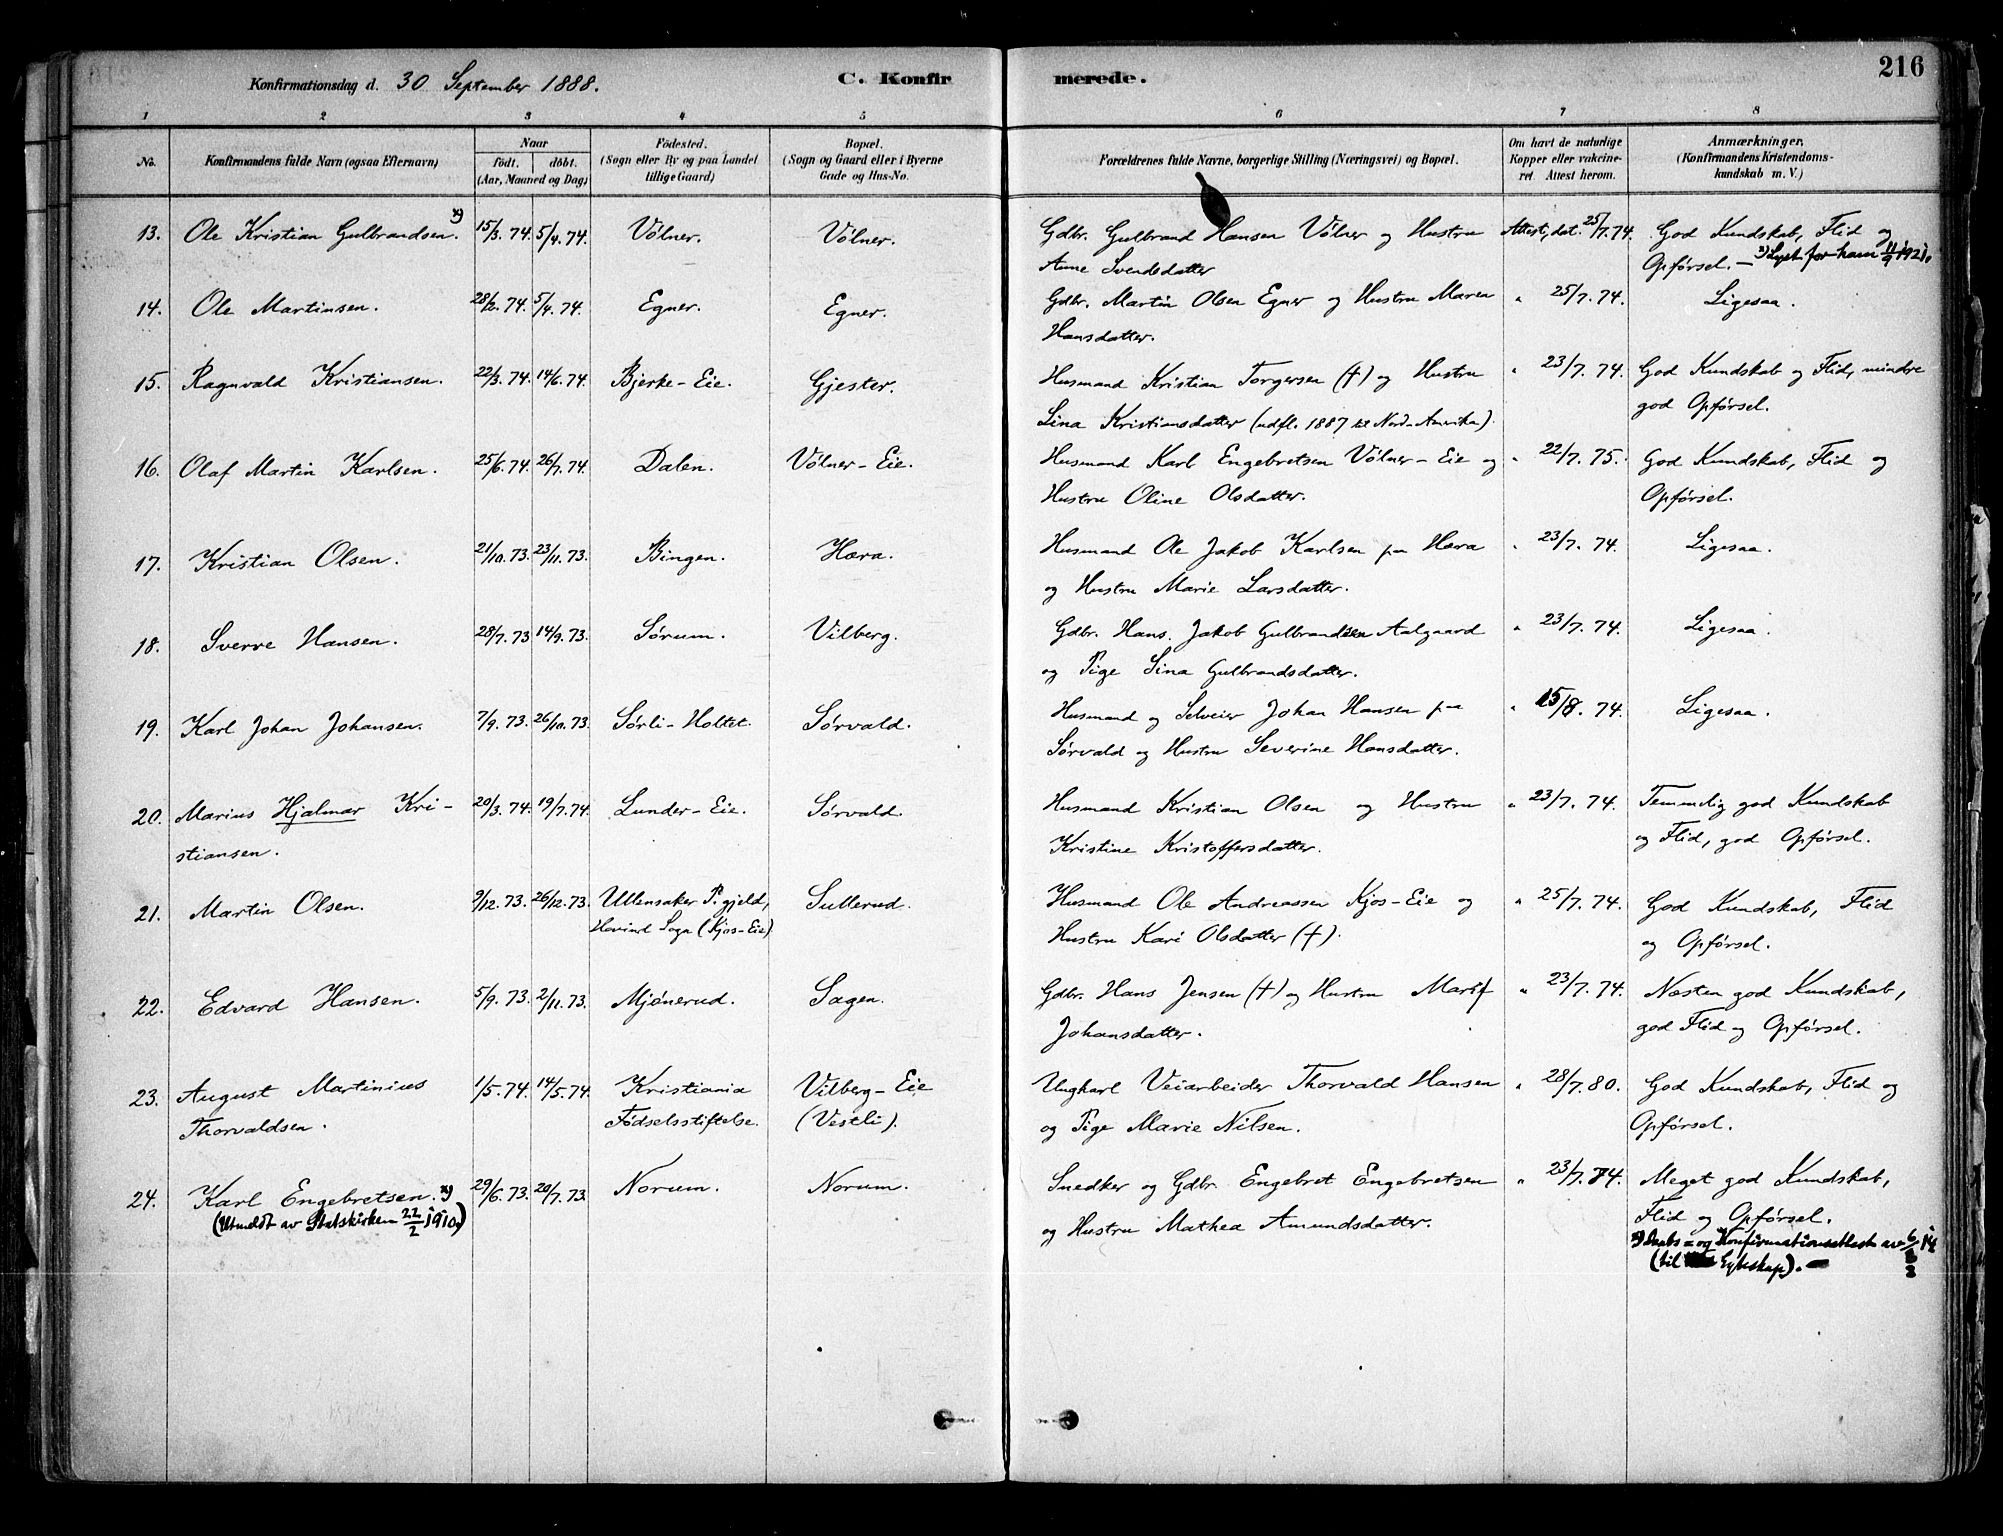 216
Konfirmationsdag d. 30 September 1888. C. Konfirmerede.
1 2 3 4 5 6 7 8
No. Konfirmandens fulde Navn (ogsaa Efternavn) Naar født. døbt. (Aar, Maaned og Dag) Fødested. (Sogn eller By og paa Landet tillige Gaard) Bopæl. (Sogn og Gaard eller i Byerne Gade og Hus-No. Forældrenes fulde Navne, borgerlige Stilling (Næringsvei) og Bopæl. Om havt de naturlige Kopper eller vakcineret. Attest herom. Anmærkninger. (Konfirmandens Kristendomskundskab m. V.)
13. Ole Kristian Gulbrandsen. x) 15/3. 74. 5/4. 74. Vølner. Vølner. Gdbr. Gulbrand Hansen Vølner og Hustru Attest, dat. 25/7. 74. God Kundskab, Flid og
Anne Svendsdatter Opførsel. — x) Lyst for ham 11/9 1921.
14. Ole Martinsen. 28/2. 74. 5/4. 74. Egner. Egner. Gdbr. Martin Olsen Egner og Hustru Maren " 25/7. 74. Ligesaa.
Hansdatter.
15. Ragnvald Kristiansen. 22/3. 74. 14/6. 74. Bjerke-Eie. Gjester. Husmand Kristian Torgersen (†) og Hustru " 23/7. 74. God Kundskab og Flid, mindre
Lina Kristiansdatter (udfl. 1887 til Nord-Amerika). god Opførsel.
16. Olaf Martin Karlsen. 25/6. 74. 26/7. 74. Dalen. Vølner-Eie. Husmand Karl Engebretsen Vølner-Eie og " 22/7. 75. God Kundskab, Flid og
Hustru Oline Olsdatter. Opførsel.
17. Kristian Olsen. 21/10. 73. 23/11. 73. Bingen. Hæra. Husmand Ole Jakob Karlsen paa Hæra " 23/7. 74. Ligesaa.
og Hustru Marie Larsdatter.
18. Sverre Hansen. 28/7. 73 14/9. 73. Sørum. Vilberg. Gdbr. Hans Jakob Gulbrandsen Aalgaard " 23/7. 74. Ligesaa.
og Pige Sina Gulbrandsdatter.
19. Karl Johan Johansen. 7/9. 73. 26/10. 73. Sørli-Holtet. Sørvald. Husmand og Selveier Johan Hansen paa " 15/8. 74. Ligesaa.
Sørvald og Hustru Severine Hansdatter.
20. Marius Hjalmar Kri- 20/3. 74. 19/7. 74. Lunder-Eie. Sørvald. Husmand Kristian Olsen og Hustru " 23/7. 74. Temmelig god Kundskab
stiansen. Kristine Kristoffersdatter. og Flid, god Opførsel.
21. Martin Olsen. 9/12. 73. 26/12. 73. Ullensaker P.gjeld, Sullerud. Husmand Ole Andreassen Kjos-Eie og " 25/7. 74. God Kundskab, Flid
Hovind Sogn (Kjos-Eie) Hustru Kari Olsdatter (†). og Opførsel.
22. Edvard Hansen. 5/9. 73. 2/11. 73. Mjønerud. Sagen. Gdbr. Hans Jensen (†) og Hustru Mari " 23/7. 74. Næsten god Kundskab,
Johansdatter. god Flid og Opførsel.
23. August Martinius 1/5. 74. 14/5. 74. Kristiania Vilberg-Eie Ungkarl Veiarbeider Thorvald Hansen " 28/7. 80. God Kundskab, Flid og
Thorvaldsen. Fødselsstiftelse. (Vestli). og Pige Marie Nilsen. Opførsel.
24. Karl Engebretsen. x) 29/6. 73. 20/7. 73. Norum. Norum. Snedker og Gdbr. Engebret Engebretsen " 23/7. 74. Meget god Kundskab,
(Utmeldt av Statskirken 22/2 1910.) og Hustru Mathea Amundsdatter. Flid og Opførsel.
x) Daabs- og Konfirmationsattest av
(til Egteskap). —